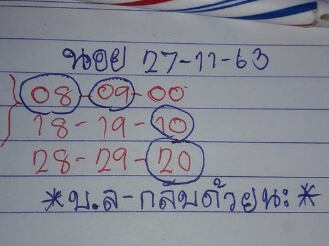 นอย 27-11-63
08-09-00
18-19-10
28-29-20
*บ.ล-กลับด้วยนะ*